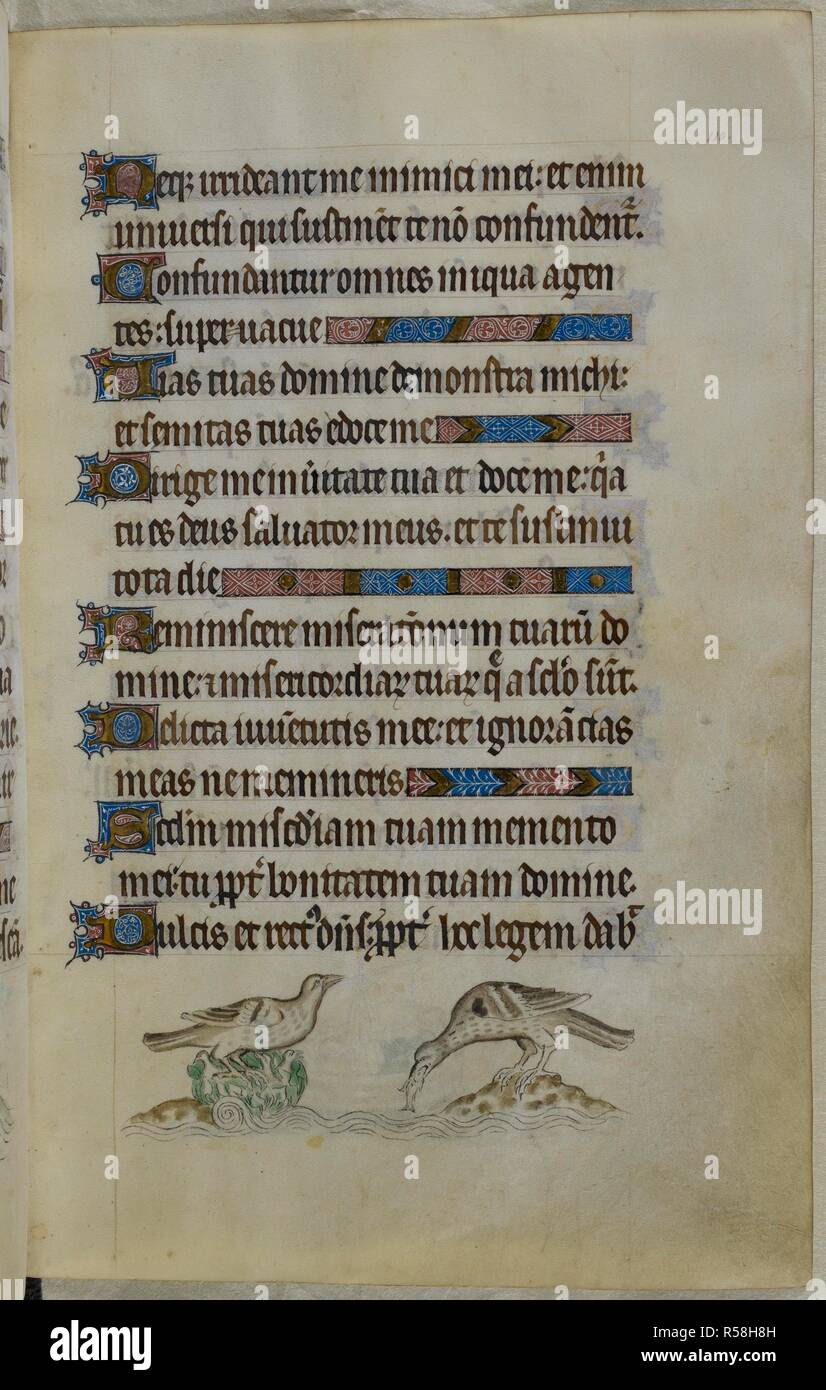 Neq3 irrideant me inimici mei: et enim
universi qui sustinēt te nō confundent̄.
Confundantur omnes iniqua agen
tes: supervacue
Vias tuas domine demonstra michi:
et semitas tuas edoce me
Dirige me in v̄itate tua et doce me: q̄a
tu es deus salvator meus. et te sustinui
tota die
Reminiscere miserac̄onum tuarū do
mine: ⁊ misericordiaꝝ tuaꝝ q̄ a sc̄lo sūt.
Delicta iuvētutis mee: et ignorāctas
meas ne memineris
Scd̄m mis̄cdiam tuam memento
mei: tu ꝓpt̄ bonitatem tuam domine.
Dulcis et rect⁹ dn̄s: ꝓpt̄ hoc legem dab̄
alamy
a
a
alamy
alamy
alamy
Image ID: R58H8H
www.alamy.com